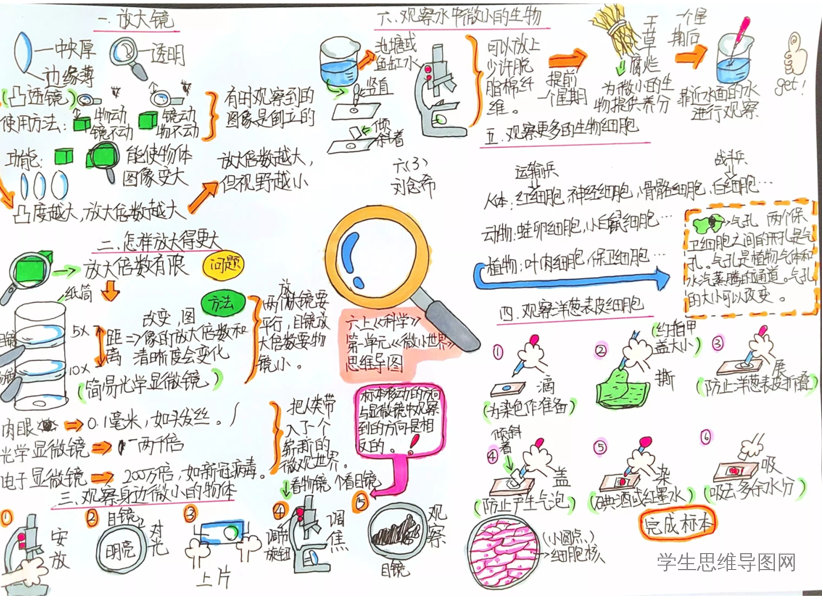 一.放大镜
中央厚
边缘薄
透明
(凸透镜)
使用方法:
物动
镜不动
镜动
物不动
有时观察到的
图像是倒立的
功能:
能使物体
图像变大
凸度越大,放大倍数越大
放大倍数越大,
但视野越小
二.怎样放大得更大
放大倍数有限
问题
纸筒
方法
目镜
5X
10X
距
离
=>
改变,图
像的放大倍数和
清晰度会变化
(简易光学显微镜)
放
两个镜要
平行,目镜放
大倍数要物
镜小。
肉眼
0.1毫米,如头发丝。
光学显微镜
一两千倍
电子显微镜
200万倍,如新冠病毒。
把人类带
入了个
崭新的
微观世界。
三.观察身边微小的物体
①
安
放
②
目镜
明亮
对
光
③
上片
④
看物镜
个看目镜
调节
旋钮
调
焦
⑤
目镜
观
察
标本移动的方向
与显微镜中观察
到的方向是相
反的。!
六(3)
六上《科学》
第一单元《微小世界》
思维导图
六.观察水中微小的生物
池塘或
鱼缸水
竖直
倾
斜着
可以放上
少许脱
脂棉纤
维。
提前
一个星期
干
草
腐烂
为微小的生
物提供养分
一个星
期后
靠近水面的水
进行观察
get!
五.观察更多的生物细胞
运输兵
战斗兵
人体:红细胞,神经细胞,骨骼细胞,白细胞…
动物:蛙卵细胞,
植物:叶肉细胞,保卫细胞…
气孔
两个保
卫细胞之间的开孔是气
孔。气孔是植物气体和
水汽蒸腾的通道。气孔
的大小可以改变。
四.观察洋葱表皮细胞
①
滴
(为染色作准备)
②
(约指甲
盖大小)
撕
③
展
(防止洋葱表皮折叠)
④
倾斜
着
盖
(防止产生气泡)
⑤
染
(碘酒或红墨水)
⑥
吸
(吸去多余水分)
完成标本
(小圆点)
细胞核
学生思维导图网